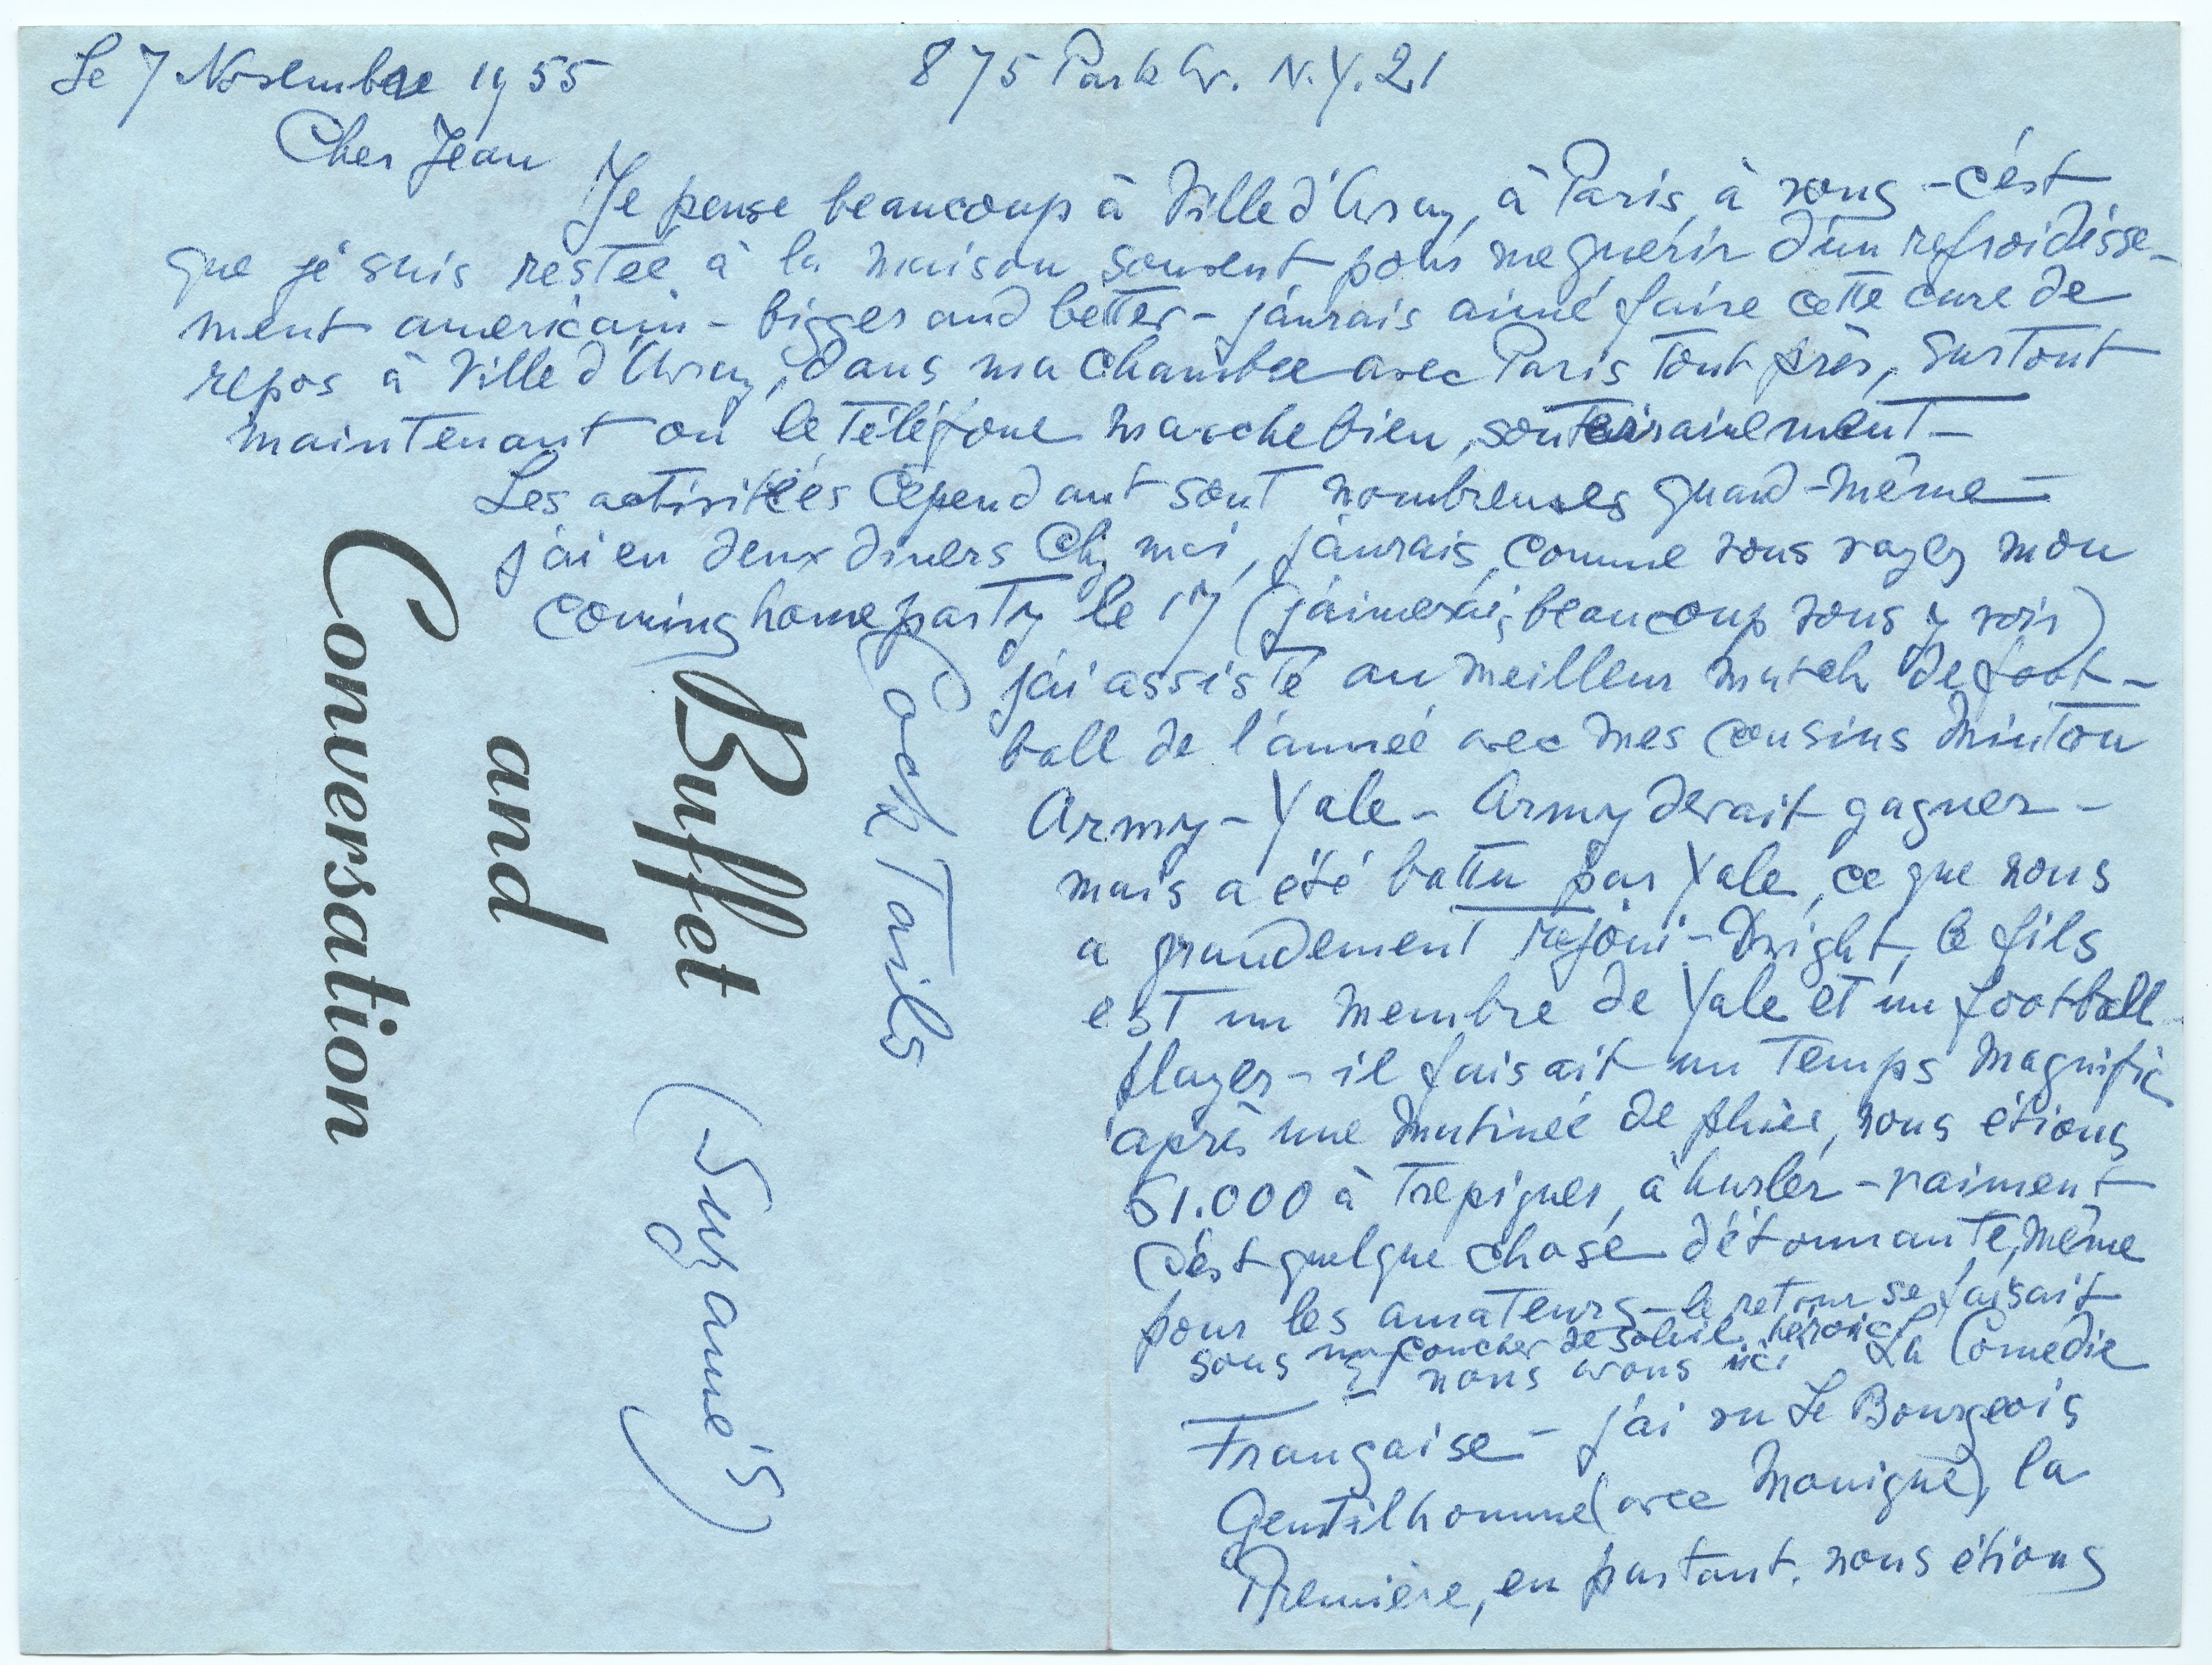 Le 7 Novembre 1955
875 Park Av. N.Y. 21
Cher Jean
Je pense beaucoup à Ville d'Avray, à Paris, à vous - c'est
que je suis restée à la maison souvent pour me guérir d'un refroidisse-
ment américain - bigger and better - j'aurais aimé faire cette cure de
repos à Ville d'Avray, dans ma chambre avec Paris tout près, surtout
maintenant ou le téléfone marche bien, souterrainement -
Les activitées cependant sont nombreuses quand-même -
j'ai eu deux diners chez moi, j'aurais, comme vous voyez mon
coming home party le 17 (j'aimerais beaucoup vous y voir)
j'ai assisté au meilleur match de foot-
ball de l'année avec mes cousins Minton
Army - Yale - Army devait gagner -
mais a été battu par Yale, ce que nous
a grandement rejoui - Dwight, le fils
est un membre de Yale et un football-
player - il faisait un temps magnific
après une matinée de pluie, nous étions
61.000 à trepigner, à hurler - vraiment
c'est quelque chose d'étonnante, même
pour les amateurs - le retour se faisait
sous un coucher de soleil héroic
Et nous avons ici La Comedie
Française - j'ai vu Le Bourgeois
Gentilhomme (avec Monique), la
Première, en partant, nous étions
CockTails
Buffet (Suzanne's)
and
Conversation